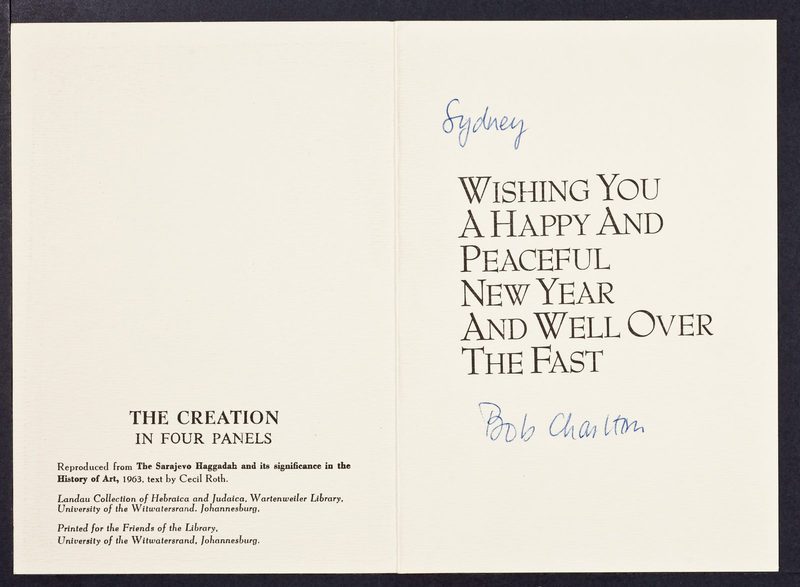 THE CREATION
IN FOUR PANELS
Reproduced from The Sarajevo Haggadah and its significance in the
History of Art, 1963, text by Cecil Roth.
Landau Collection of Hebraica and Judaica, Wartenweiler Library,
University of the Witwatersrand, Johannesburg,
Printed for the Friends of the Library,
University of the Witwatersrand, Johannesburg.
Sydney
WISHING YOU
A HAPPY AND
PEACEFUL
NEW YEAR
AND WELL OVER
THE FAST
Bob Charlton